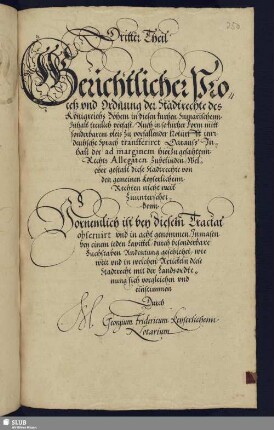 Dritter Theil
Gerichtlicher Pro-
ceß vnd Ordnung der Stadtrechte des
Königreichs Böhem in diesen kurtzen
Inhalt treulich verfast. Auch in
sonderbarem vleis
deutsche Sprach transferiret
halt der ad marginem hierzu gesetzten
Rechts Allegaten Zubefinden. Wel-
cher gestalt diese Stadtrechte von
den gemeinen keyserlichenn
Rechten nicht viel
Zwitterschei-
denn
Vornemlich ist bey diesem Tractat
obseruirt vnd in acht genommen. Inmassen
bey einem jeden Capittel durch besonderbare
Buchstaben Andeutung geschiehet, wie
weit vnd in welchen Articteln diese
Stadtrecht mit der Landtordt-
nung sich vorgleichen vnd
einstimmen
Durch
M. Georgium Fridericum Keyserlichenn
Notarium
SLUB